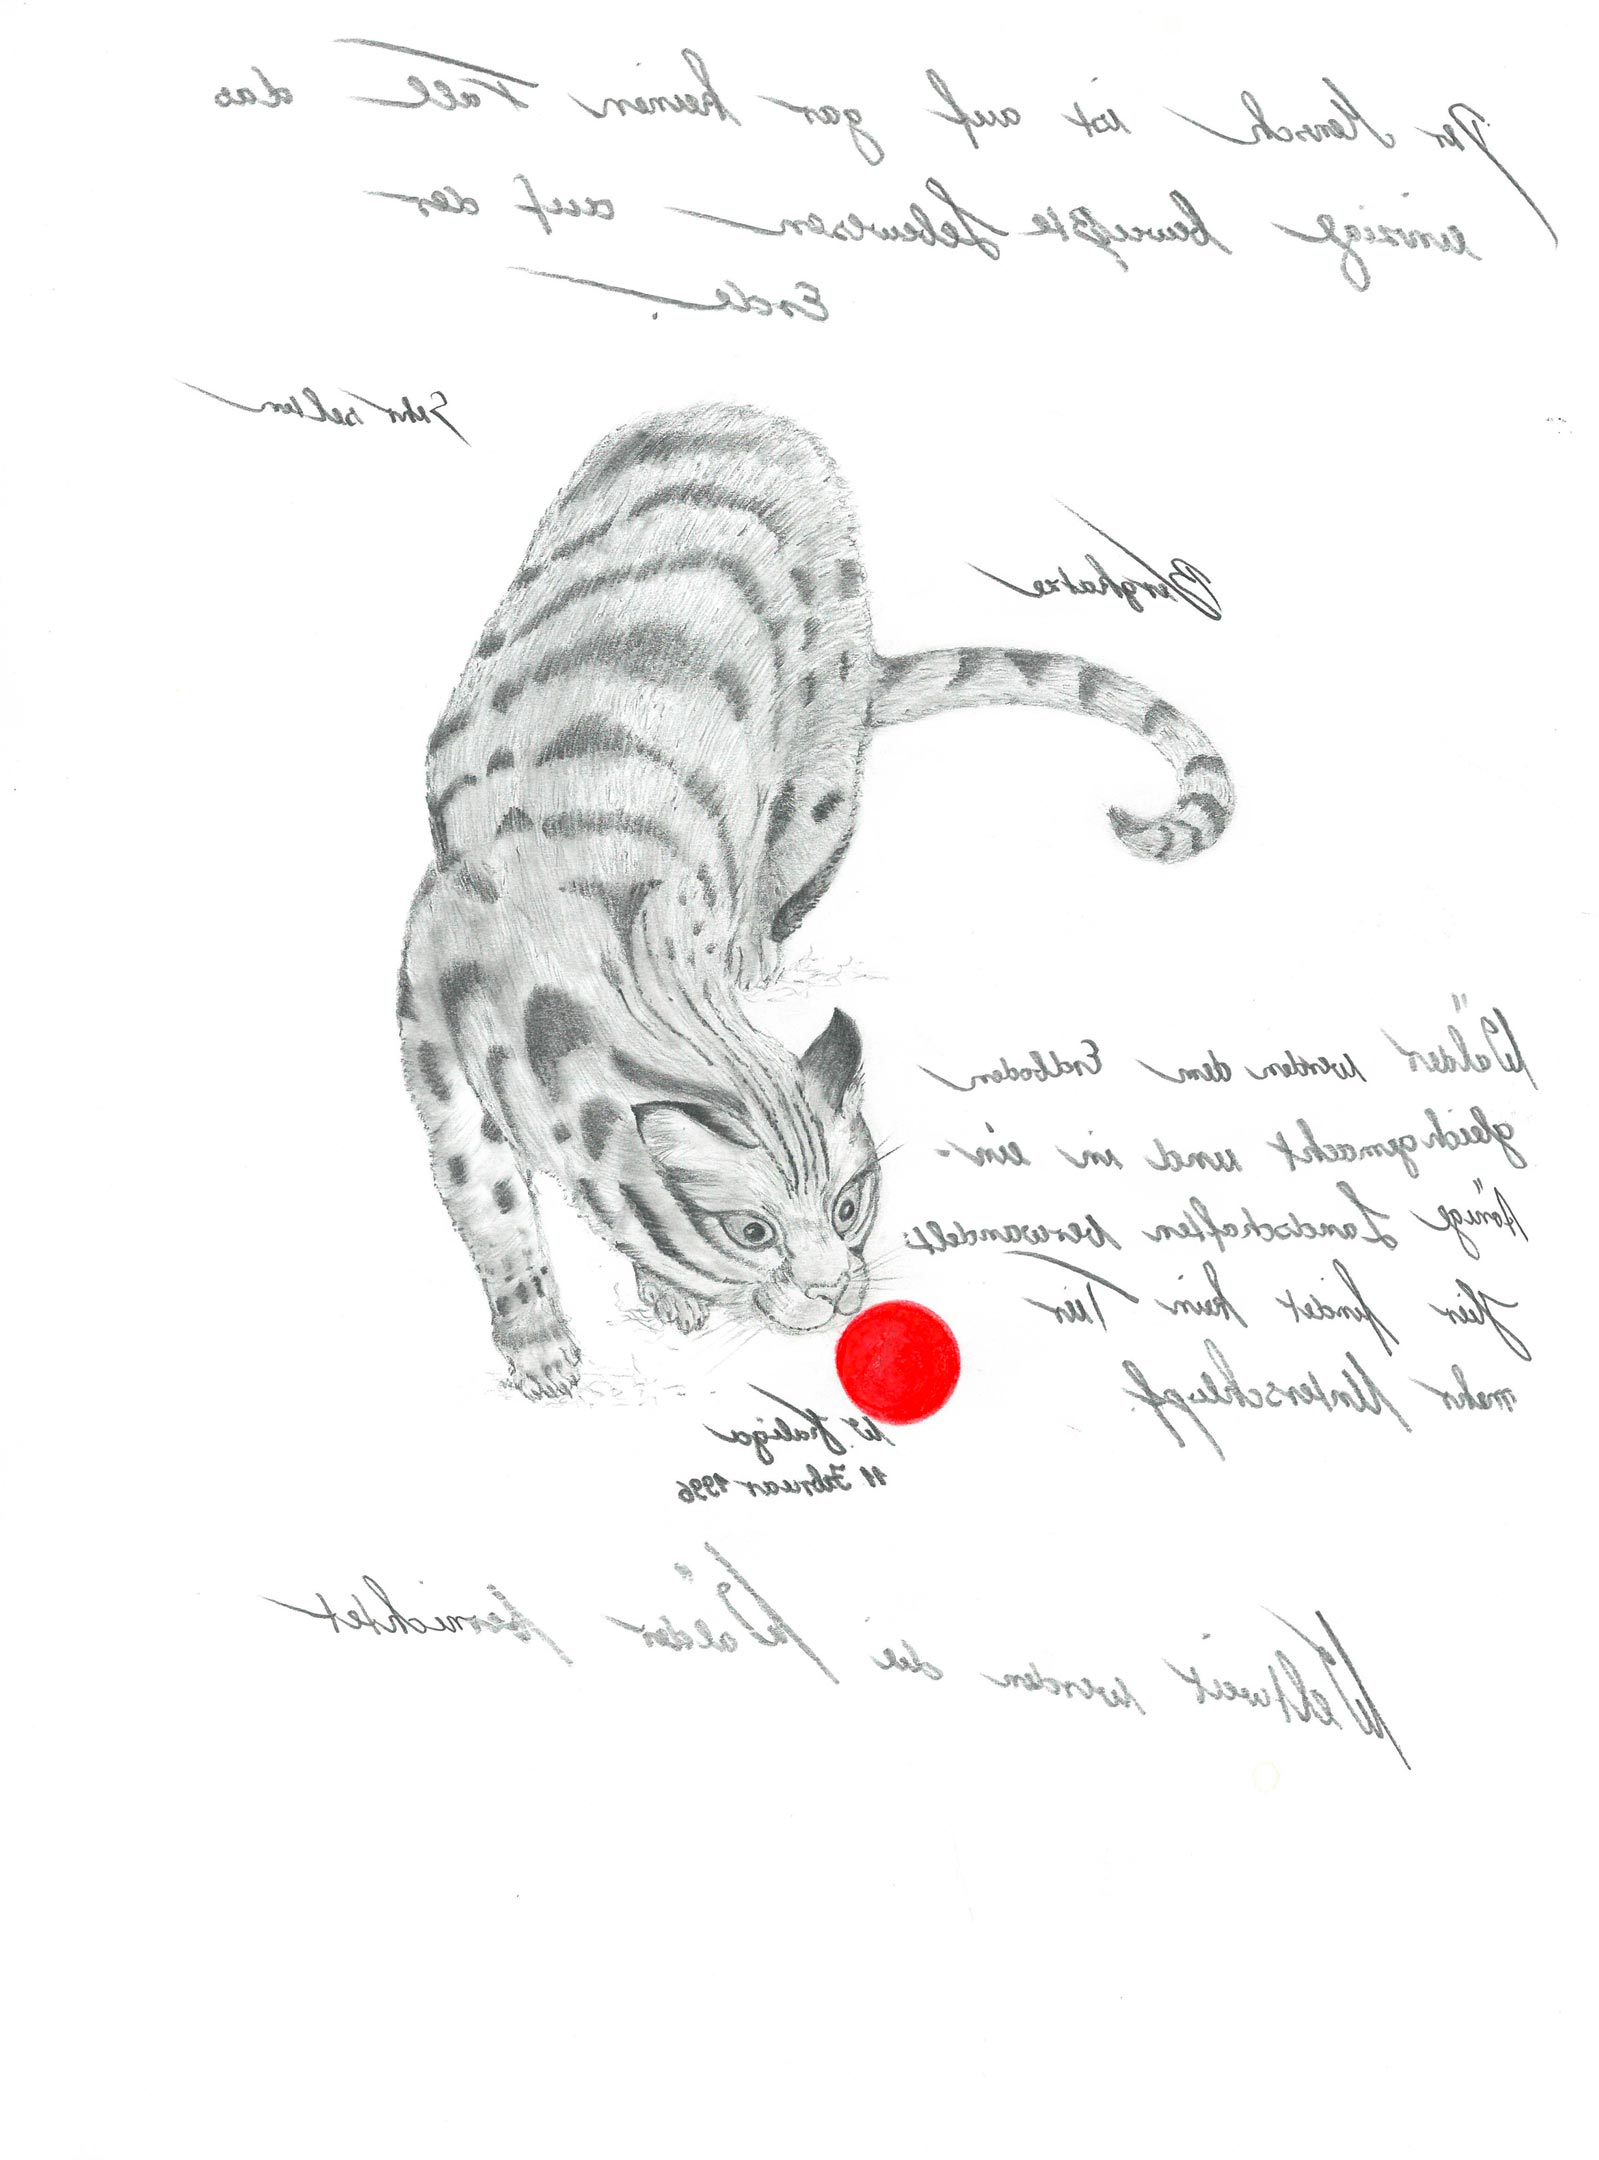 Der Mensch ist auf gar keinen Fall das
einzige bewußte Lebewesen auf der
Erde.
Sehr selten
Bergkatze
Wälder werden dem Erdboden
gleichgemacht und in ein-
tönige Landschaften verwandelt.
Hier findet kein Tier
mehr Unterschlupf.
11 Februar 1996
Weltweit werden die Wälder vernichtet